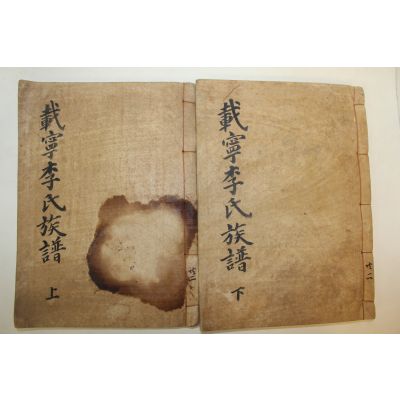 載寧李氏族譜
上
載寧李氏族譜
下
共二